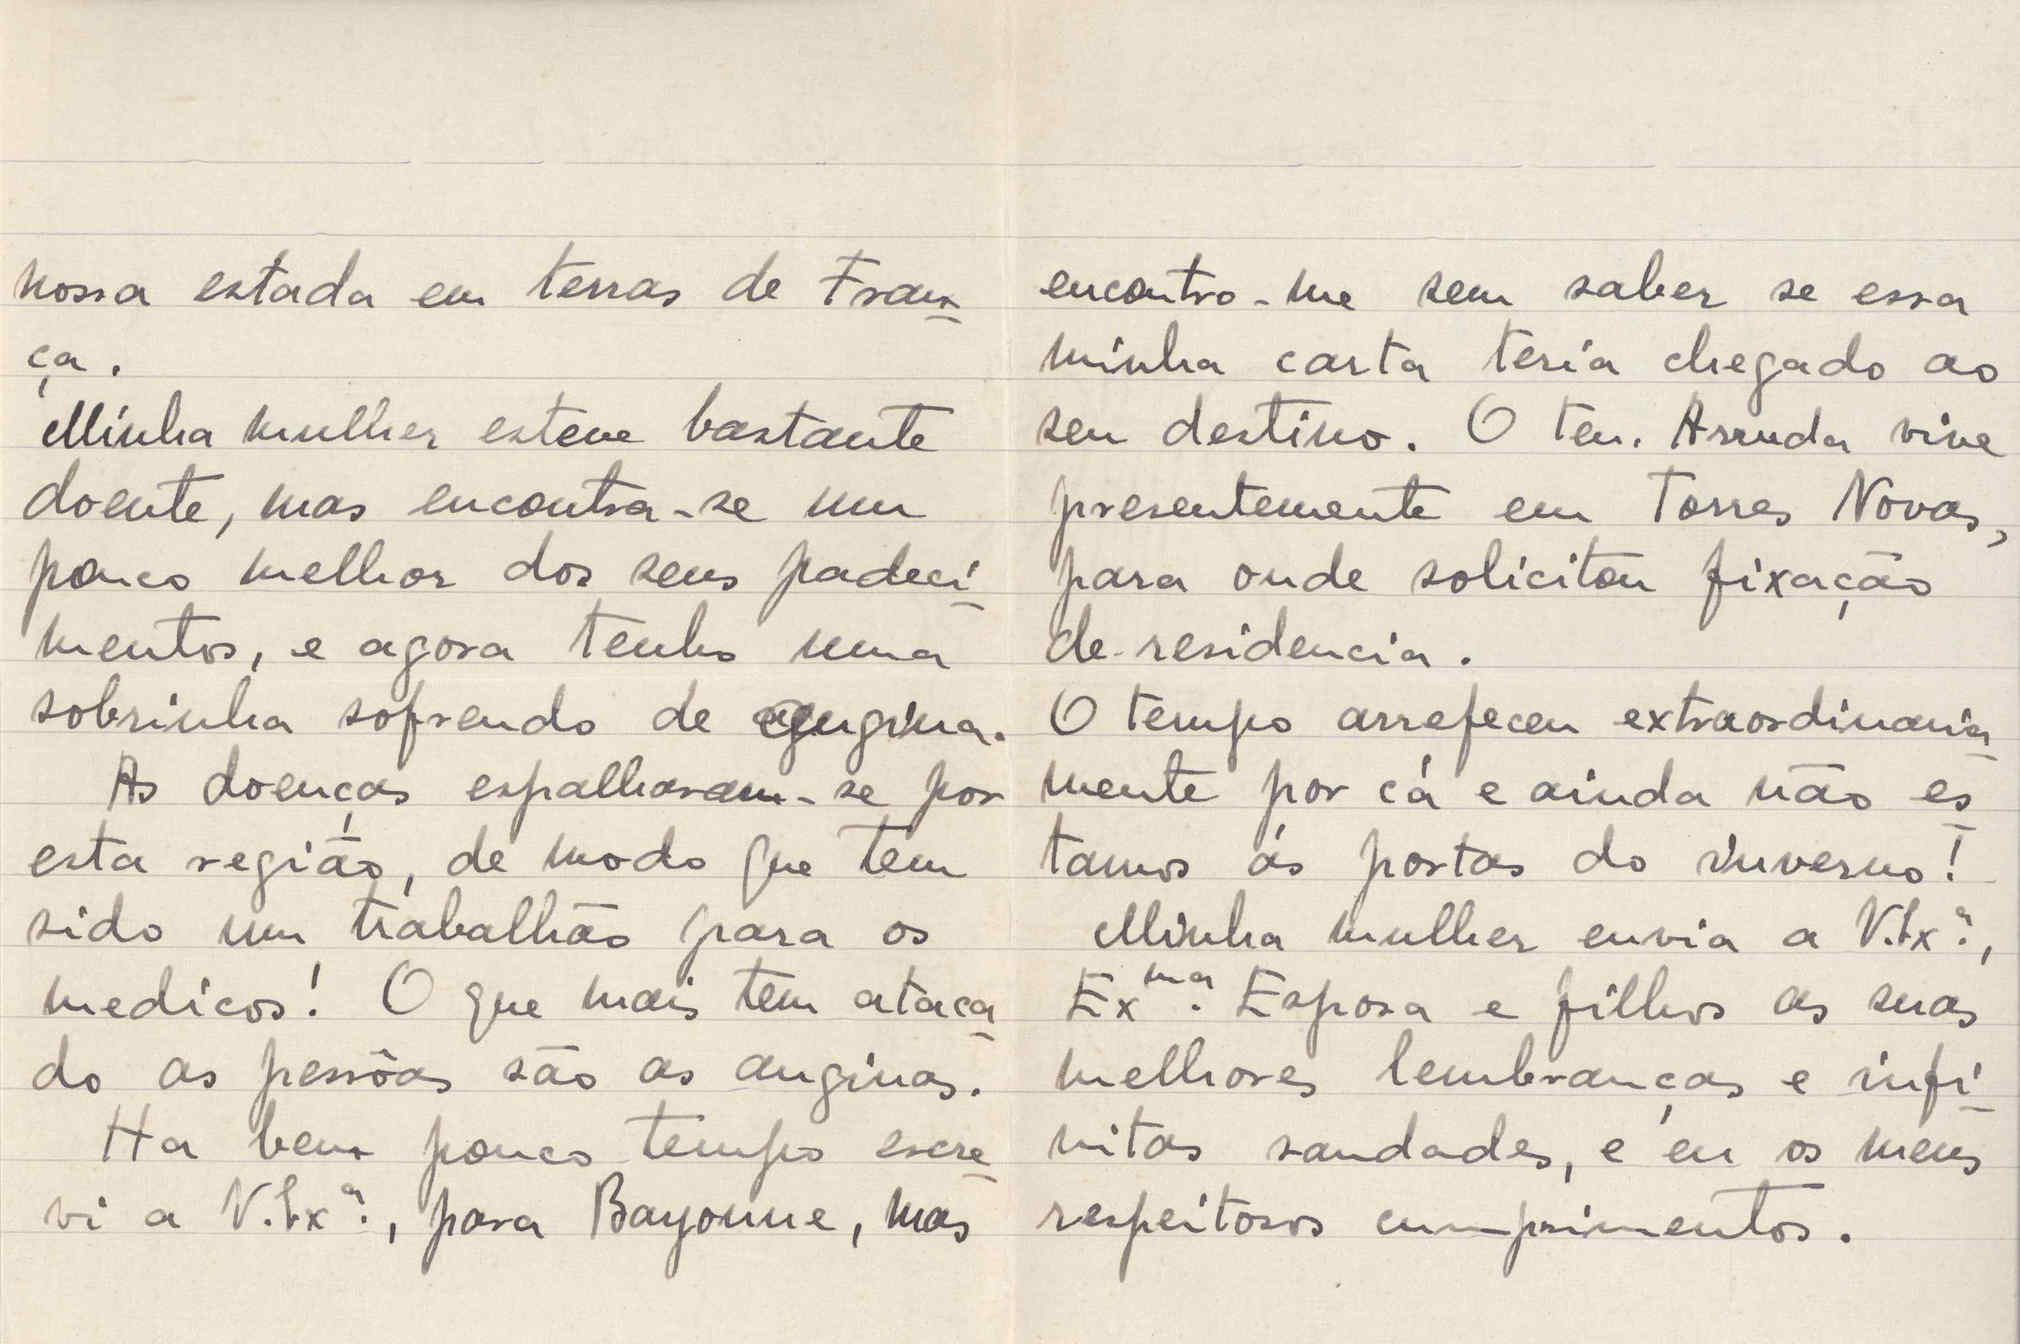 nossa estada em terras de Fran-
ça.
Minha mulher esteve bastante
doente, mas encontra-se um
pouco melhor dos seus padeci-
mentos, e agora tenho uma
sobrinha sofrendo de angina.
As doenças espalharam-se por
esta região, de modo que tem
sido um trabalhão para os
medicos! O que mais tem ataca-
do as pessôas são as anginas.
Ha bem pouco tempo escre-
vi a V. Exª., para Bayonne, mas
encontro-me sem saber se essa
minha carta teria chegado ao
seu destino. O ten. Arruda vive
presentemente em Torres Novas,
para onde solicitou fixação
de residencia.
O tempo arrefeceu extraordinaria-
mente por cá e ainda não es-
tamos ás portas do inverno!
Minha mulher envia a V. Exª.,
Exᵐᵃ. Esposa e filhos as suas
melhores lembranças e infi-
nitas saudades, e eu os meus
respeitosos cumprimentos.